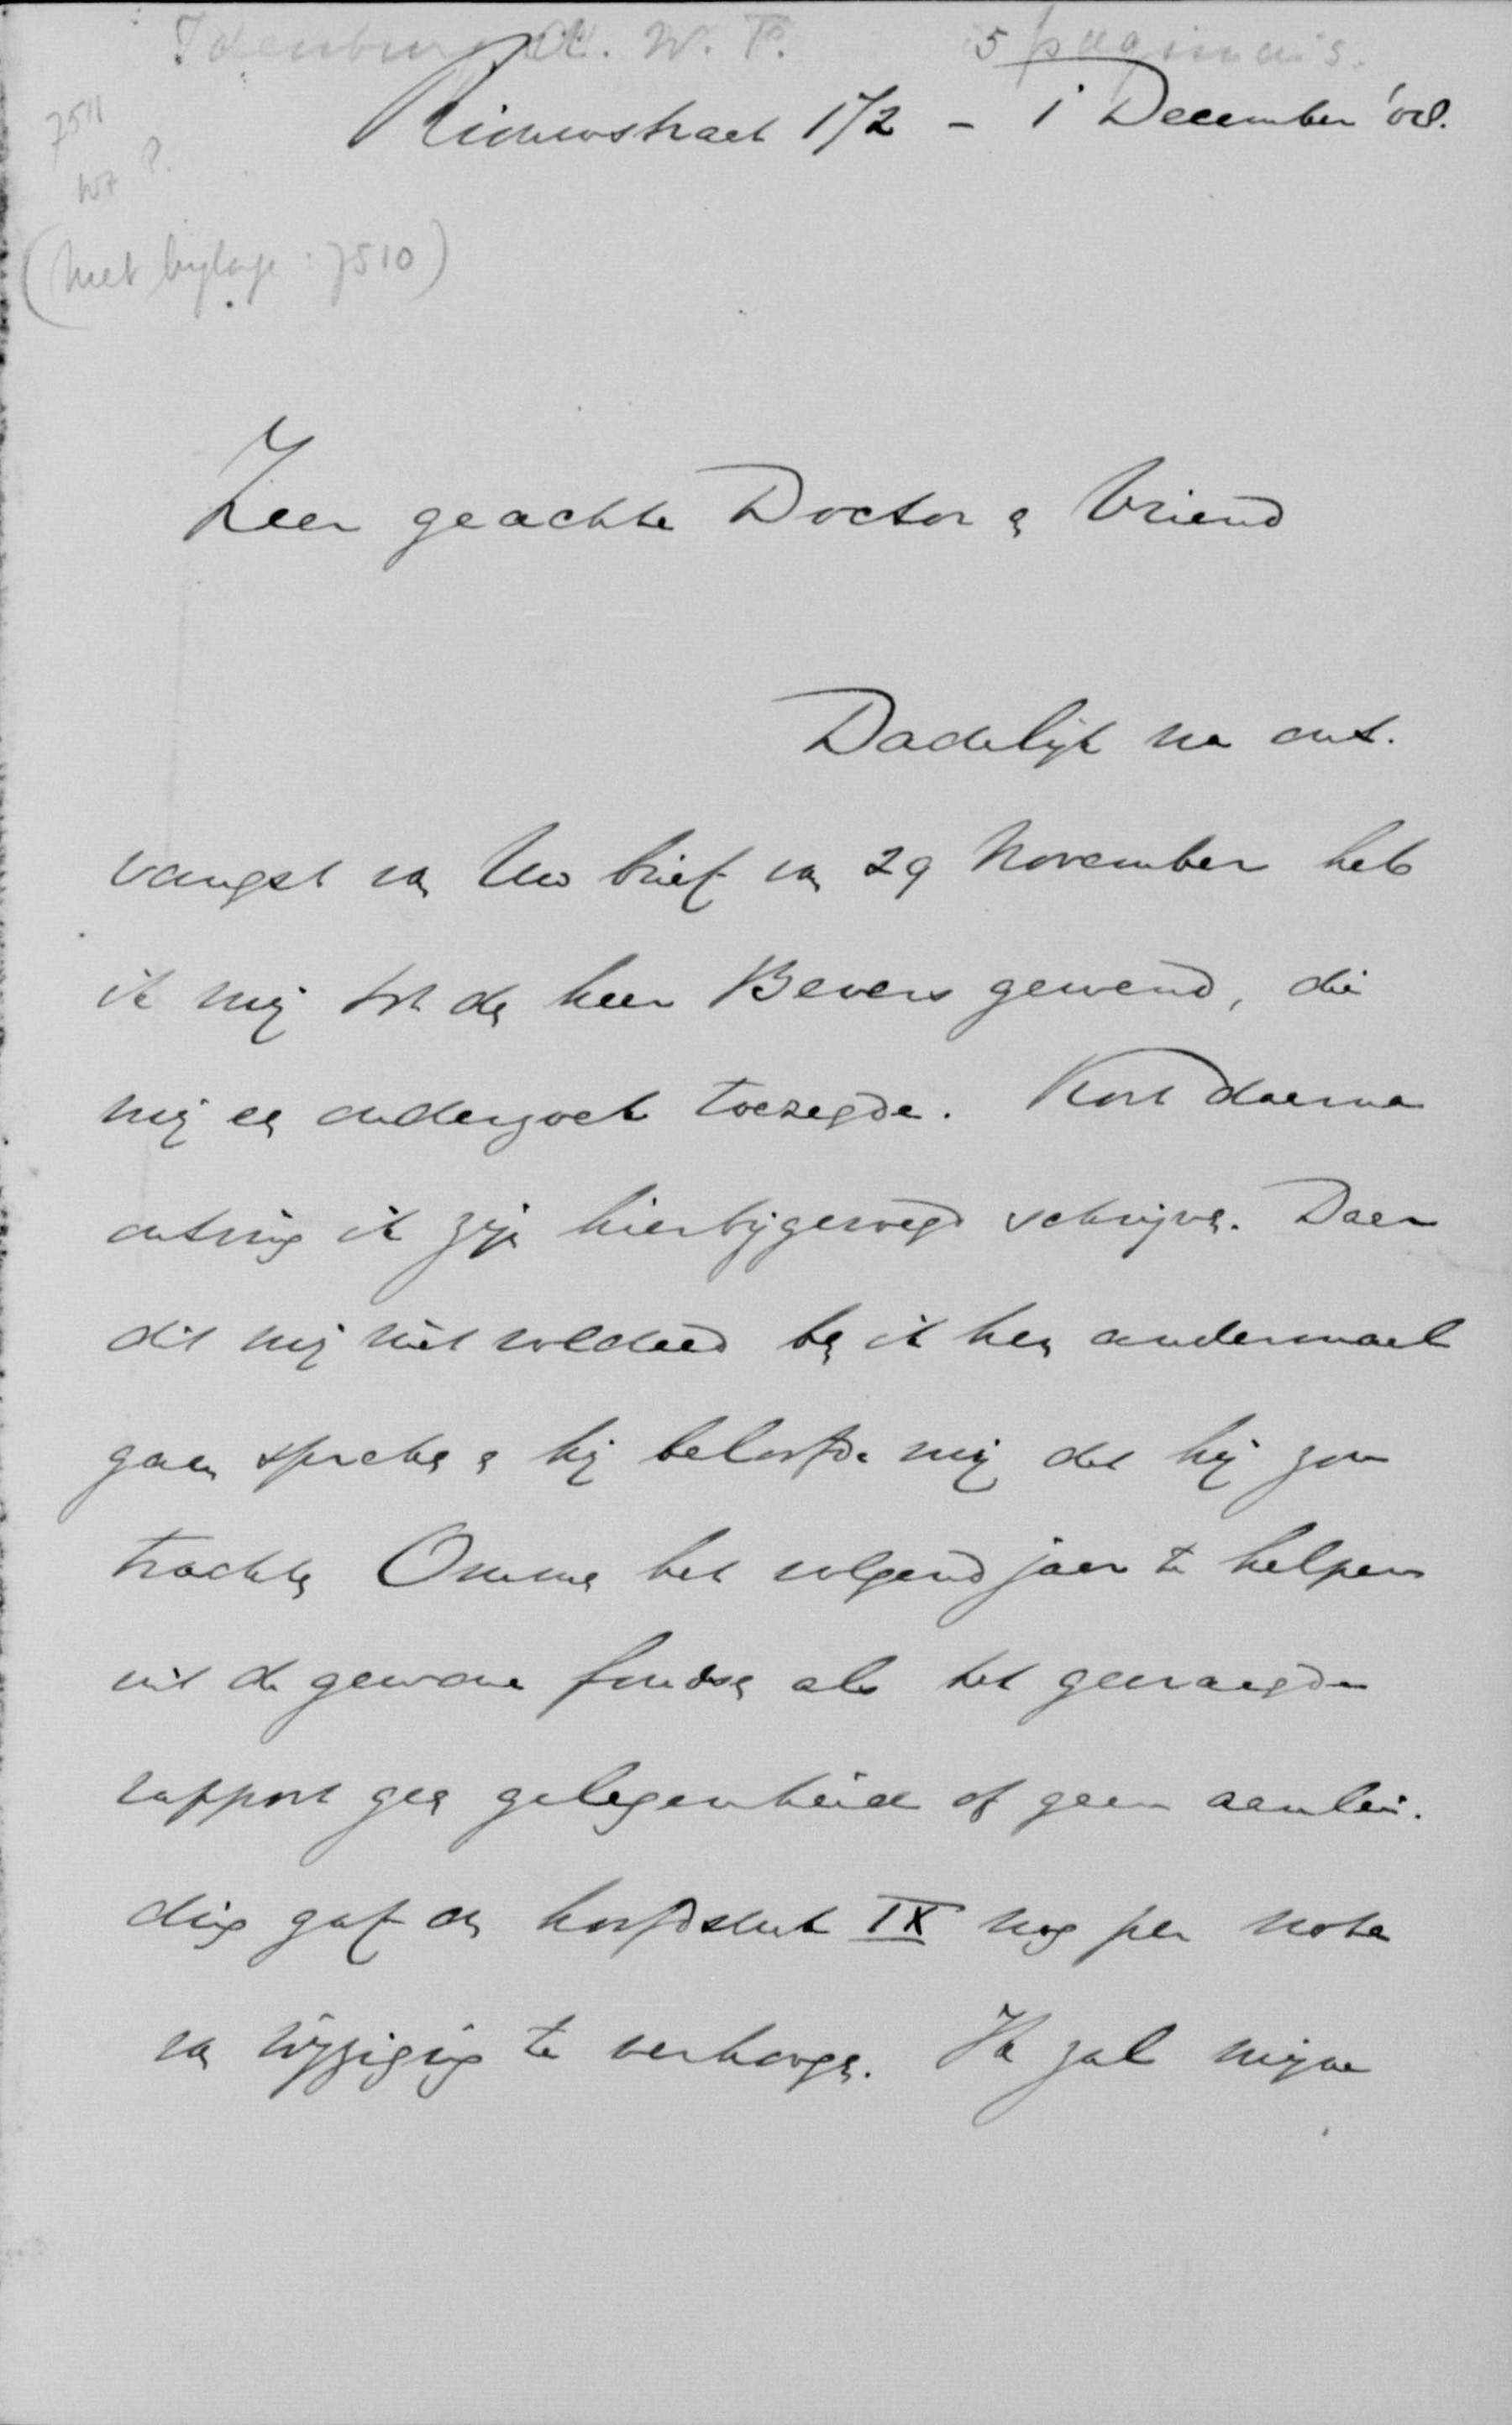 Idenburg A. W. F. 5 pagina's.
7511
Riouwstraat 172 - 1 December '08.
(met bijlage: 7510)
Zeer geachte Doctor en Vriend
Dadelijk na ont-
vangst van Uw brief van 29 November heb
ik mij tot den heer Bevers gewend, die
mij een onderzoek toezegde. Kort daarna
ontving ik zijn hierbijgevoegd schrijven. Daar
dit mij niet voldeed ben ik hem andermaal
gaan spreken en hij beloofde mij dat hij zou
trachten Ommen het volgend jaar te helpen
uit de gewone fondsen als het gevraagde
rapport geen gelegenheid of geen aanlei-
ding gaf om hoofdstuk IX nog per nota
van wijziging te verhoogen. Ik zal mijne